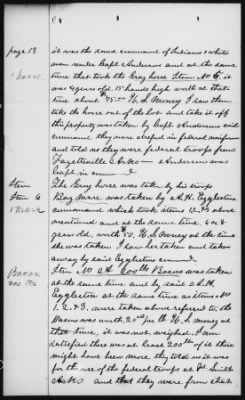 page 18
1 horse
it was the same command of Indians & whites
even under Capt Anderson and at the same
time that took the Gray horse Item No 5, it
was 4 years old 15 hands high worth at that
time about $75.00 U.S. Money I saw them
take the horse out of the lot and take it off
this property was taken by Capt Anderson and
command they were dressed in federal uniform
and told us they were federal troops from
Fayetteville Arks — Anderson was
Capt in command
The Gray horse was taken by his troop
Item
Item 6
1 Mare
Bay Mare was taken by A.H. Eggleston
command which took items 1 2 & 3 above
mentioned and at the same time 6 or 8
years old, worth U.S. Money at the time
she was taken I saw her taken and taken
away by said Eggleston command
Bacon
200 lbs
Item No 200 lbs Bacon was taken
at the same time and by said A.H.
Eggleston at the same time as items No
1. 2 & 3. were taken above refered to, the
Bacon was worth 20 cts per lb U.S. money at
that time, it was not weighed. I am
satisfied there was at lease 200 lbs of it there
might have been more they told us it was
for the use of the federal troops at Ft Smith
Arks and that they were from that